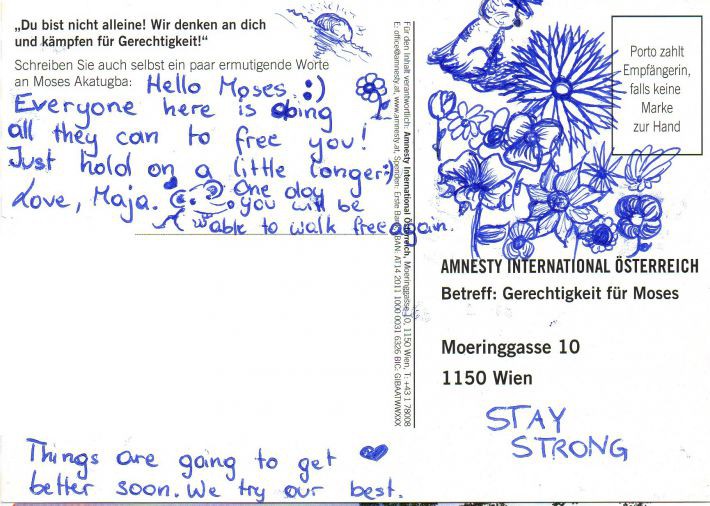 „Du bist nicht alleine! Wir denken an dich
und kämpfen für Gerechtigkeit!“
Schreiben Sie auch selbst ein paar ermutigende Worte
an Moses Akatugba: Hello Moses :)
Everyone here is doing
all they can to free you!
Just hold on a little longer:)
Love, Maja.
One day
you will be
able to walk free again.
Things are going to get
better soon. We try our best.
Für den Inhalt verantwortlich: Amnesty International Österreich, Moeringgasse 10, 1150 Wien, T: +43 1 78008
E: office@amnesty.at, www.amnesty.at, Spenden: Erste Bank IBAN: AT14 2011 1000 0031 6326 BIC: GIBAATWWXXX
Porto zahlt
Empfängerin,
falls keine
Marke
zur Hand
AMNESTY INTERNATIONAL ÖSTERREICH
Betreff: Gerechtigkeit für Moses
Moeringgasse 10
1150 Wien
STAY
STRONG